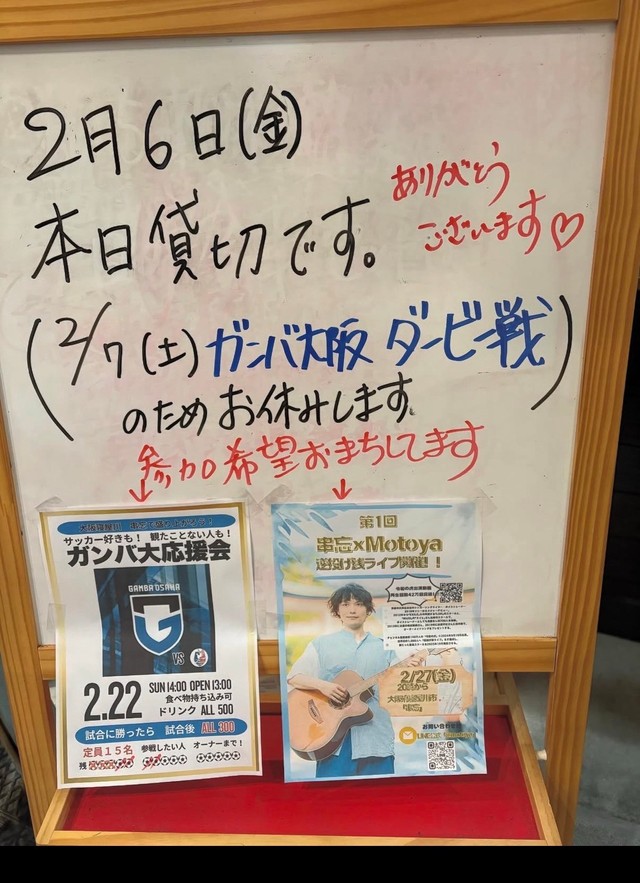 2月6日(金)
本日貸切です。
ありがとう
ございます♡
(2/7(土)ガンバ大阪 ダービー戦)
のためお休みします。
参加希望おまちしてます
サッカー好きも! 観たことない人も!
ガンバ大応援会
GAMBA OSAKA
VS
2.22
SUN 14:00 OPEN 13:00
食べ物持ち込み可
ドリンク ALL 500
試合に勝ったら 試合後 ALL 300
定員15名 参戦したい人 オーナーまで!
残
第1回
串忘×Motoya
逆投げ銭ライブ開催!
2/27(金)
20時から
お問い合わせ